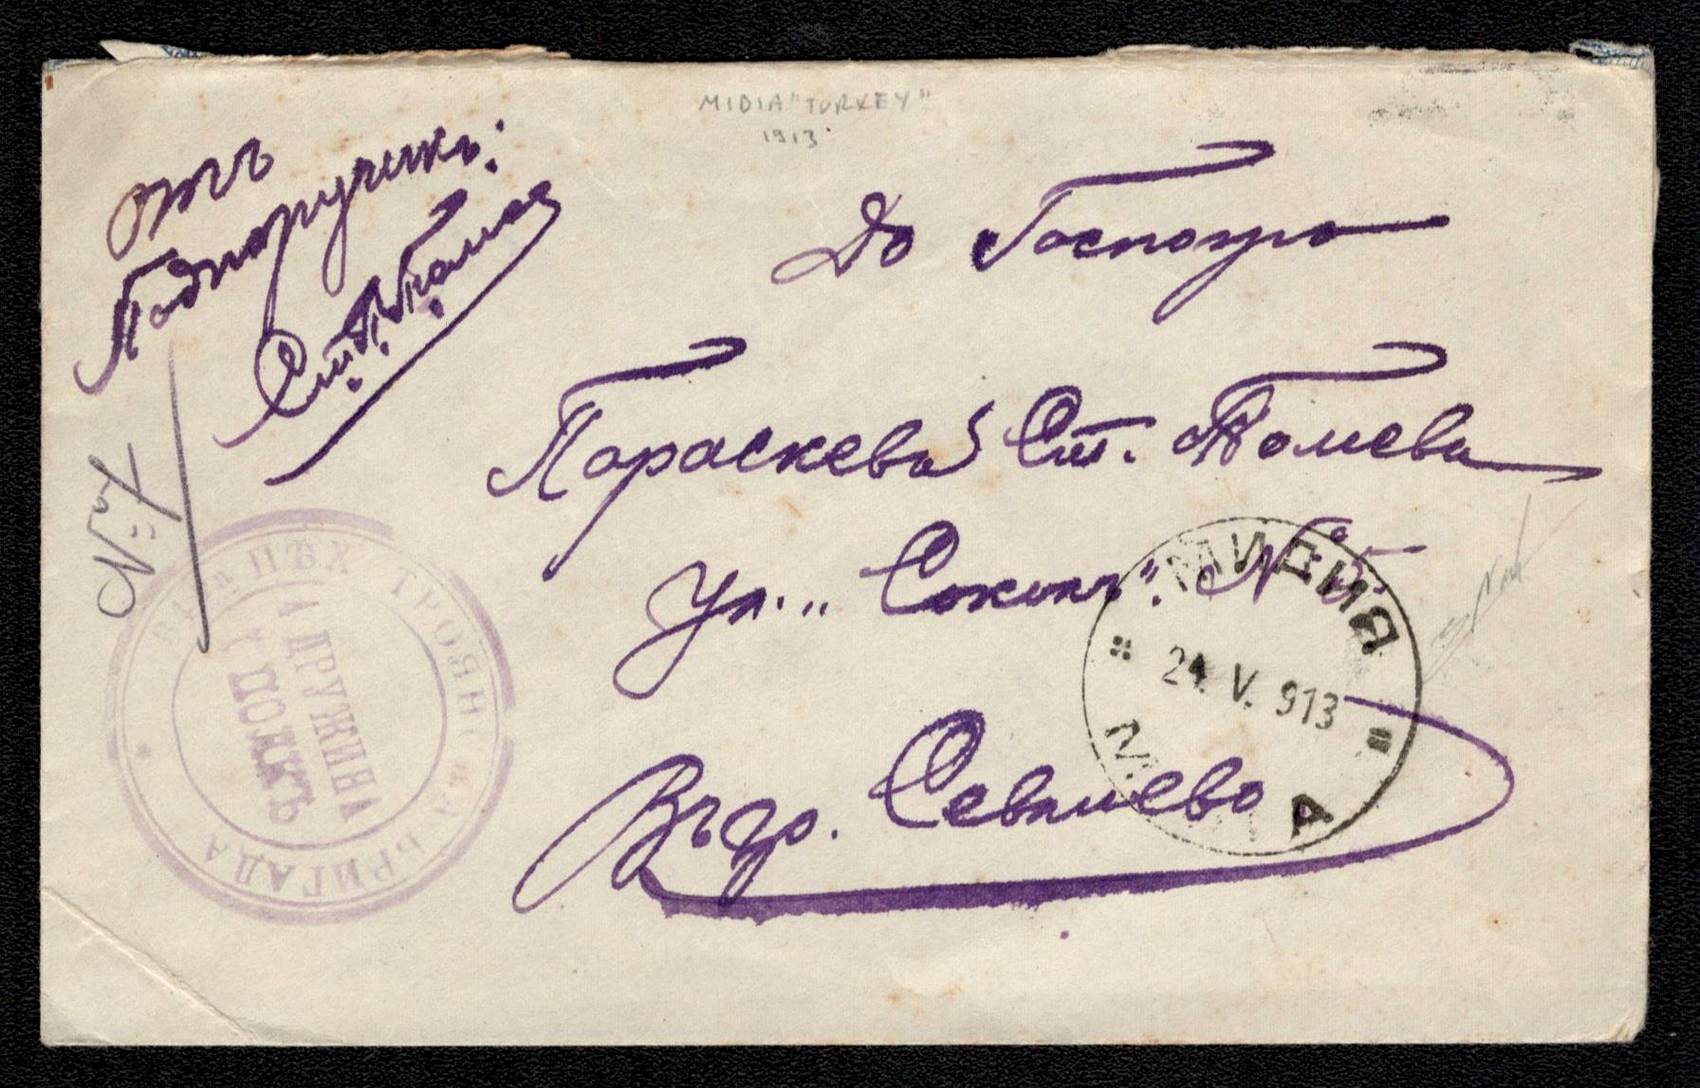 MIDIA "TURKEY"
1913
отъ
Подпоручикъ:
Ст. П. Томев
До Госпожа
Параскева Ст. Томева
Ул. „Сокол".
Въ гр. Севлиево
№ 7
МИДИЯ
24. V. 913
ПѢХ. ТРОЯН БРИГАДА
1 ДРУЖИНА
1 ПОЛКЪ